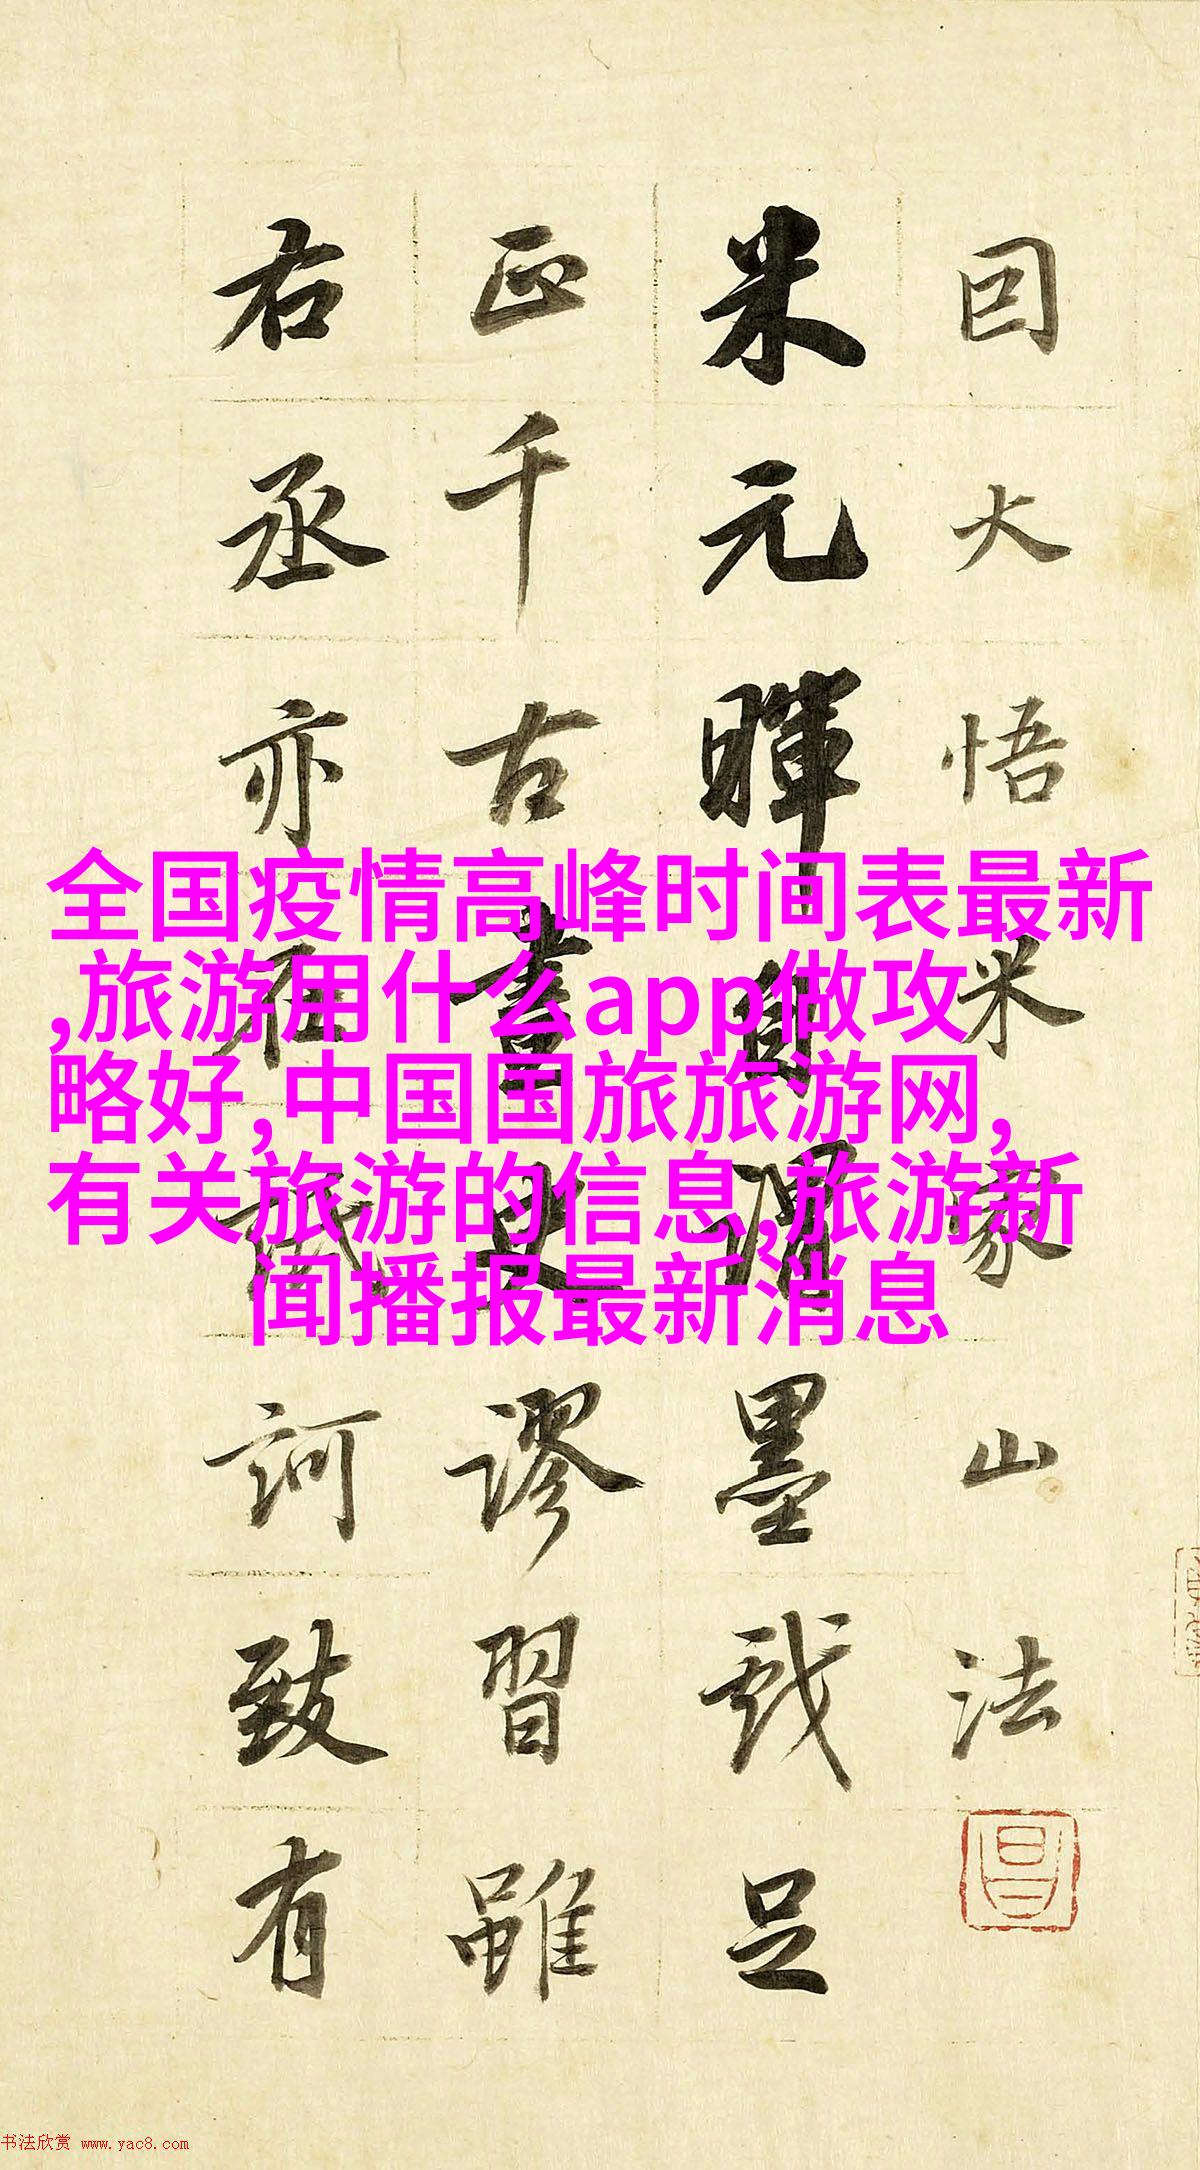 囙大悟米家山法
米元暉自謂墨戲足
正千古畫史謬習雖
右丞亦在詆訶致有
全国疫情高峰时间表最新
,旅游用什么app做攻
略好,中国国旅旅游网,
有关旅游的信息,旅游新
闻播报最新消息
书法欣赏 www.yac8.com